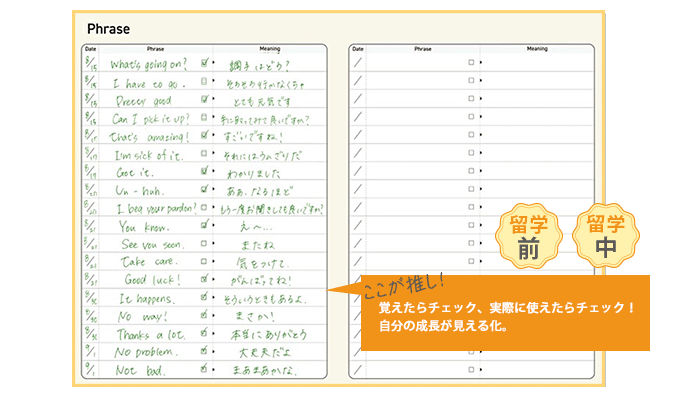 Phrase
Date Phrase Meaning
8/15 What's going on? 調子はどう?
8/15 I have to go. そろそろ行かなくちゃ
8/15 Pretty good とても元気です
8/15 Can I pick it up? 手に取ってみて良いですか?
8/15 That's amazing! すごいですね!
8/17 I'm sick of it. それにはうんざりだ
8/19 Got it. わかりました
8/20 Un-huh. ああ、なるほど
8/20 I beg your pardon? もう一度お聞きしても良いですか?
8/21 You know. え〜...
8/21 See you soon. またね
8/21 Take care. 気をつけて.
8/21 Good luck! がんばってね!
8/30 It happens. そういうときもあるよ.
8/30 No way! まさか!
8/30 Thanks a lot. 本当にありがとう
9/1 No problem. 大丈夫だよ
9/1 Not bad. まあまあかな.
Date Phrase Meaning
留学前
留学中
ここが推し!
覚えたらチェック、実際に使えたらチェック!
自分の成長が見える化。